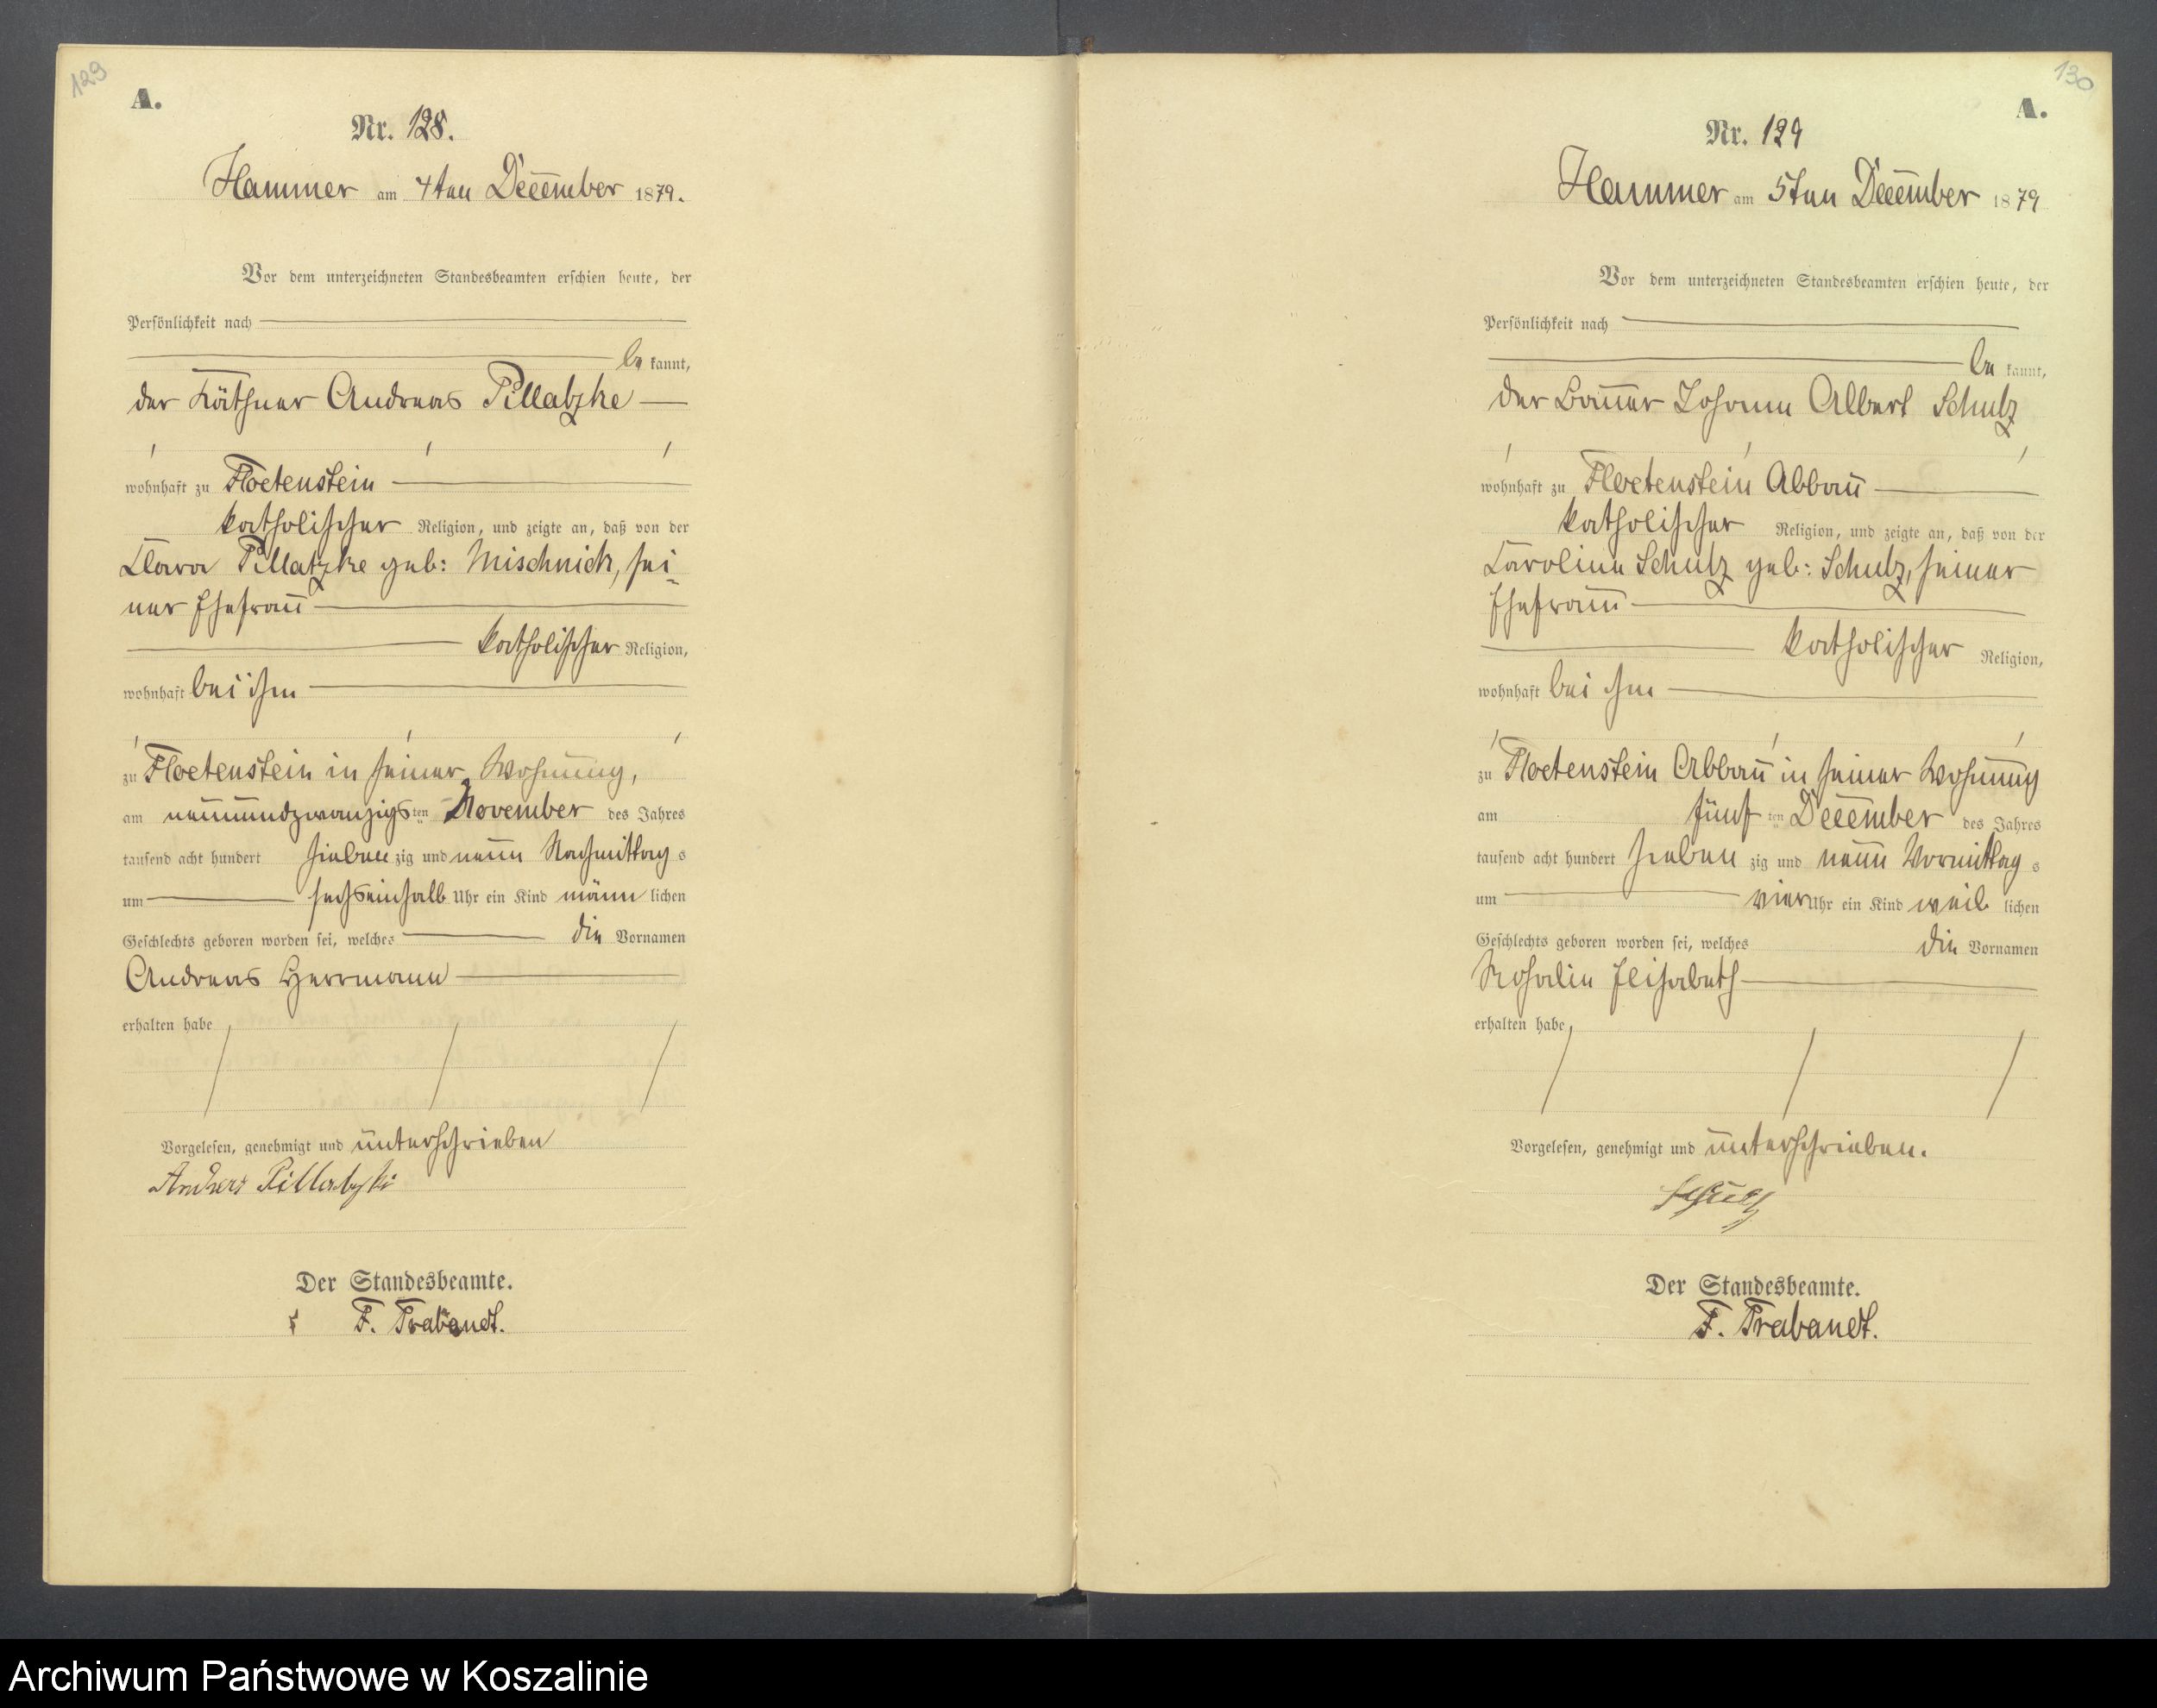 129
A.
Nr. 128.
Hammer am 4ten December 1879.
Vor dem unterzeichneten Standesbeamten erschien heute, der
Persönlichkeit nach
be kannt,
der Käthner Andreas Pillatzke
wohnhaft zu Floetenstein
katholischer Religion, und zeigte an, daß von der
Clara Pillatzke geb: Mischnick, sei-
ner Ehefrau
katholischer Religion,
wohnhaft bei ihm
zu Floetenstein in seiner Wohnung,
am neunundzwanzigs ten November des Jahres
tausend acht hundert sieben zig und neun Nachmittag s
um sechseinhalb Uhr ein Kind männ lichen
Geschlechts geboren worden sei, welches die Vornamen
Andreas Herrmann
erhalten habe
Vorgelesen, genehmigt und unterschrieben
Andreas Pillatzki
Der Standesbeamte.
F. Trabandt.
130
A.
Nr. 129
Hammer am 5ten December 1879
Vor dem unterzeichneten Standesbeamten erschien heute, der
Persönlichkeit nach
be kannt,
der Bauer Johann Albert Schulz
wohnhaft zu Floetenstein Abbau
katholischer Religion, und zeigte an, daß von der
Caroline Schulz geb: Schulz, seiner
Ehefrau
katholischer Religion,
wohnhaft bei ihm
zu Floetenstein Abbau in seiner Wohnung
am fünf ten December des Jahres
tausend acht hundert sieben zig und neun Vormittag s
um vier Uhr ein Kind weib lichen
Geschlechts geboren worden sei, welches die Vornamen
Rosalie Elisabeth
erhalten habe
Vorgelesen, genehmigt und unterschrieben.
Schulz
Der Standesbeamte.
F. Trabandt.
Archiwum Państwowe w Koszalinie